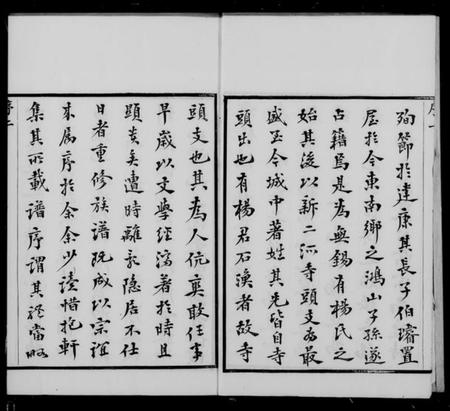 殉節於建康其長子伯璿置
屋於今東南鄉之鴻山子孫遂
占籍焉是為無錫有楊氏之
始其後以新二河寺頭支為最
盛至今城中著姓其先皆自寺
頭出也有楊君石漁者故寺
頭支也其為人伉爽敢任事
早歲以文學經濟著於時且
顯矣美遭時離亂隱居不仕
日者重修族譜既成以宗誼
來屬序於余余少讀惜抱軒
集其所載譜序謂其說當略
序二